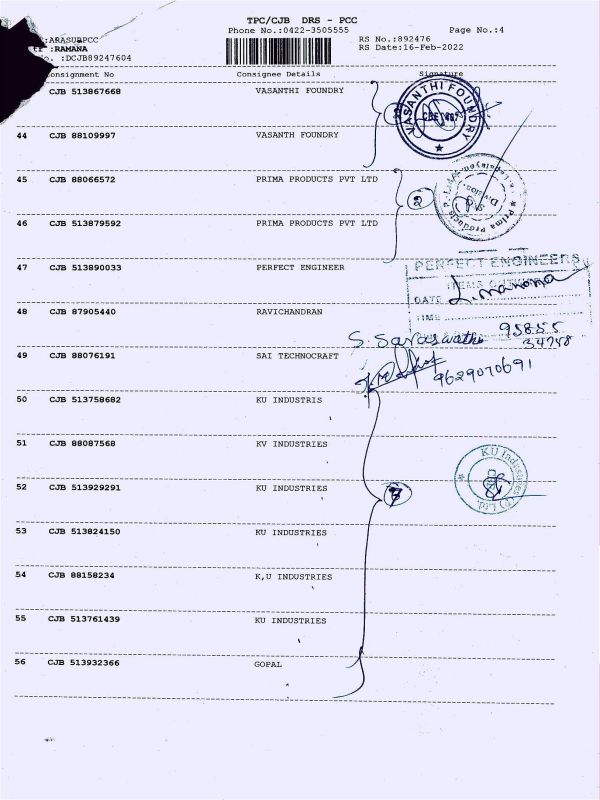 TPC/CJB DRS - PCC
Phone No.:0422-3505555 Page No.:4
:ARASURPCC RS No.:892476
:RAMANA RS Date:16-Feb-2022
:DCJB89247604
onsignment No Consignee Details Signature
CJB 513867668 VASANTHI FOUNDRY
VASANTHI FOUNDRY
44 CJB 88109997 VASANTH FOUNDRY
45 CJB 88066572 PRIMA PRODUCTS PVT LTD
2
Prima Products
Division
46 CJB 513879592 PRIMA PRODUCTS PVT LTD
47 CJB 513890033 PERFECT ENGINEER
PERFECT ENGINEERS
DATE
TIME
48 CJB 87905440 RAVICHANDRAN
S. Saraswathi 95855
34758
49 CJB 88076191 SAI TECHNOCRAFT
9629070691
50 CJB 513758682 KU INDUSTRIS
51 CJB 88087568 KV INDUSTRIES
KU Industries (P) Ltd.
52 CJB 513929291 KU INDUSTRIES
7
53 CJB 513824150 KU INDUSTRIES
54 CJB 88158234 K,U INDUSTRIES
55 CJB 513761439 KU INDUSTRIES
56 CJB 513932366 GOPAL